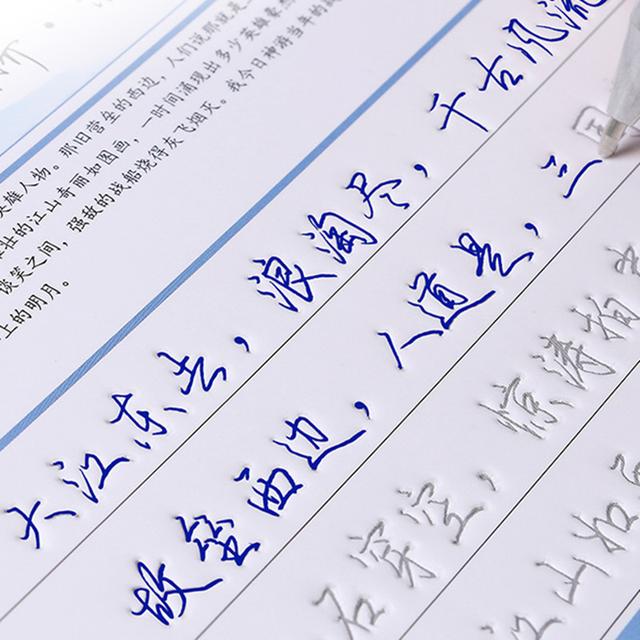 人们说那就是
英雄人物。那旧营垒的西边，
壮的江山奇丽如图画，一时间涌现出多少英雄豪杰
谈笑之间，强敌的战船烧得灰飞烟灭。我今日神游当年的战
上的明月。
大江东去，浪淘尽，千古风流
故垒西边，人道是，三
石穿空，惊涛拍
江山如